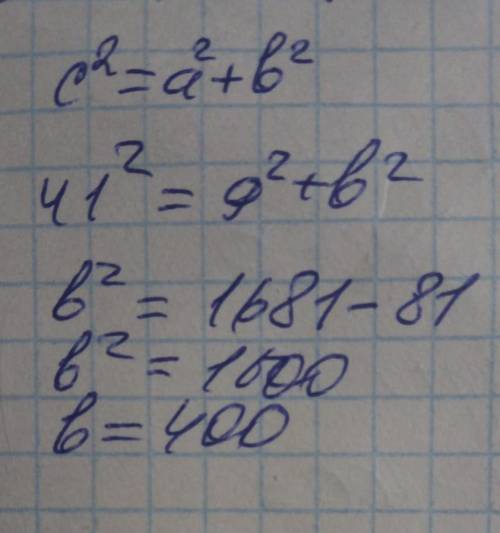 c²=a²+b²
41²=9²+b²
b²=1681-81
b²=1600
b=400